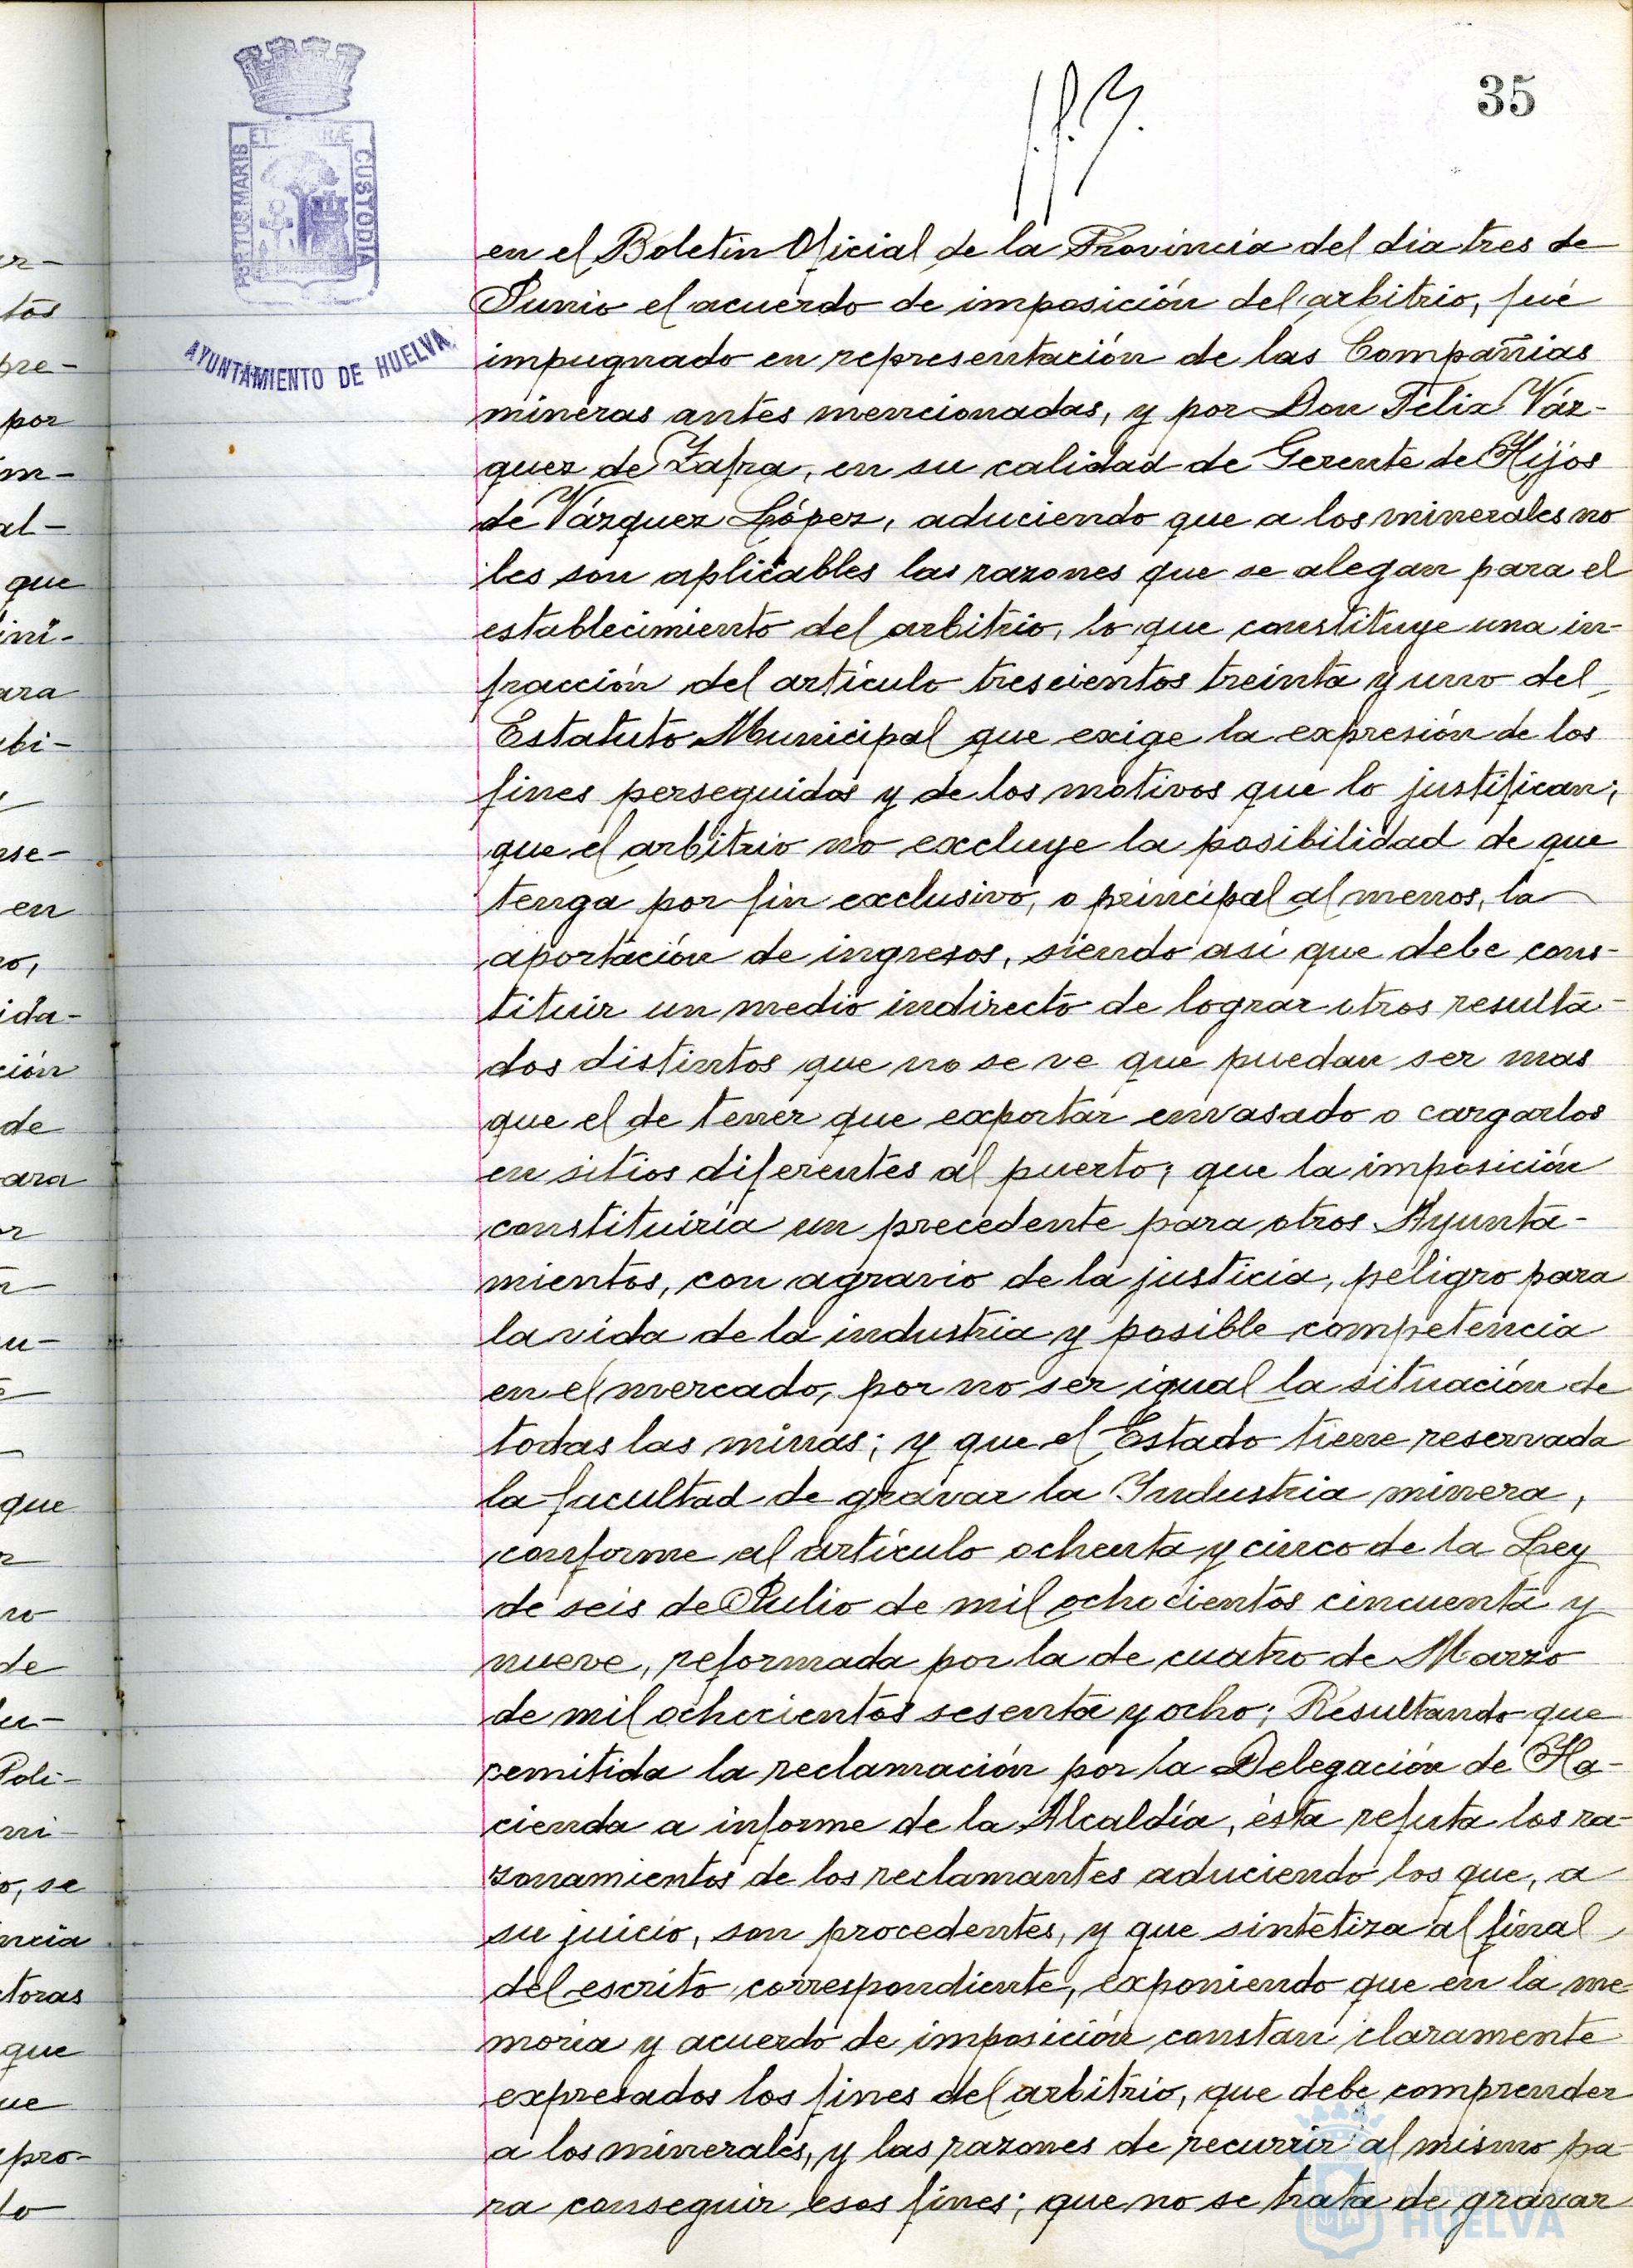 35
PORTUS MARIS ET TERRAE CUSTODIA
AYUNTAMIENTO DE HUELVA
en el Boletin Oficial de la Provincia del dia tres de
Junio el acuerdo de imposición del arbitrio, fué
impugnado en representación de las Compañias
mineras antes mencionadas, y por Don Felix Váz-
quez de Zafra, en su calidad de Gerente de Hijos
de Vázquez López, aduciendo que a los minerales no
les son aplicables las razones que se alegan para el
establecimiento del arbitrio, lo que constituye una in-
fracción del artículo trescientos treinta y uno del
Estatuto Municipal que exige la expresión de los
fines perseguidos y de los motivos que lo justifican;
que el arbitrio no excluye la posibilidad de que
tenga por fin exclusivo, o principal al menos, la
aportación de ingresos, siendo así que debe cons-
tituir un medio indirecto de lograr otros resulta-
dos distintos que no se ve que puedan ser mas
que el de tener que exportar envasado o cargarlos
en sitios diferentes al puerto; que la imposición
constituiría un precedente para otros Ayunta-
mientos, con agravio de la justicia, peligro para
la vida de la industria y posible competencia
en el mercado, por no ser igual la situación de
todas las minas; y que el Estado tiene reservada
la facultad de gravar la Industria minera,
conforme al artículo ochenta y cinco de la Ley
de seis de Julio de mil ochocientos cincuenta y
nueve, reformada por la de cuatro de Marzo
de mil ochocientos sesenta y ocho; Resultando que
remitida la reclamación por la Delegación de Ha-
cienda a informe de la Alcaldía, ésta refuta los ra-
zonamientos de los reclamantes aduciendo los que, a
su juicio, son procedentes, y que sintetiza al final
del escrito correspondiente, exponiendo que en la me
moria y acuerdo de imposición constan claramente
expresados los fines del arbitrio, que debe comprender
a los minerales, y las razones de recurrir al mismo pa-
ra conseguir esos fines; que no se trata de gravar
Ayuntamiento de
HUELVA